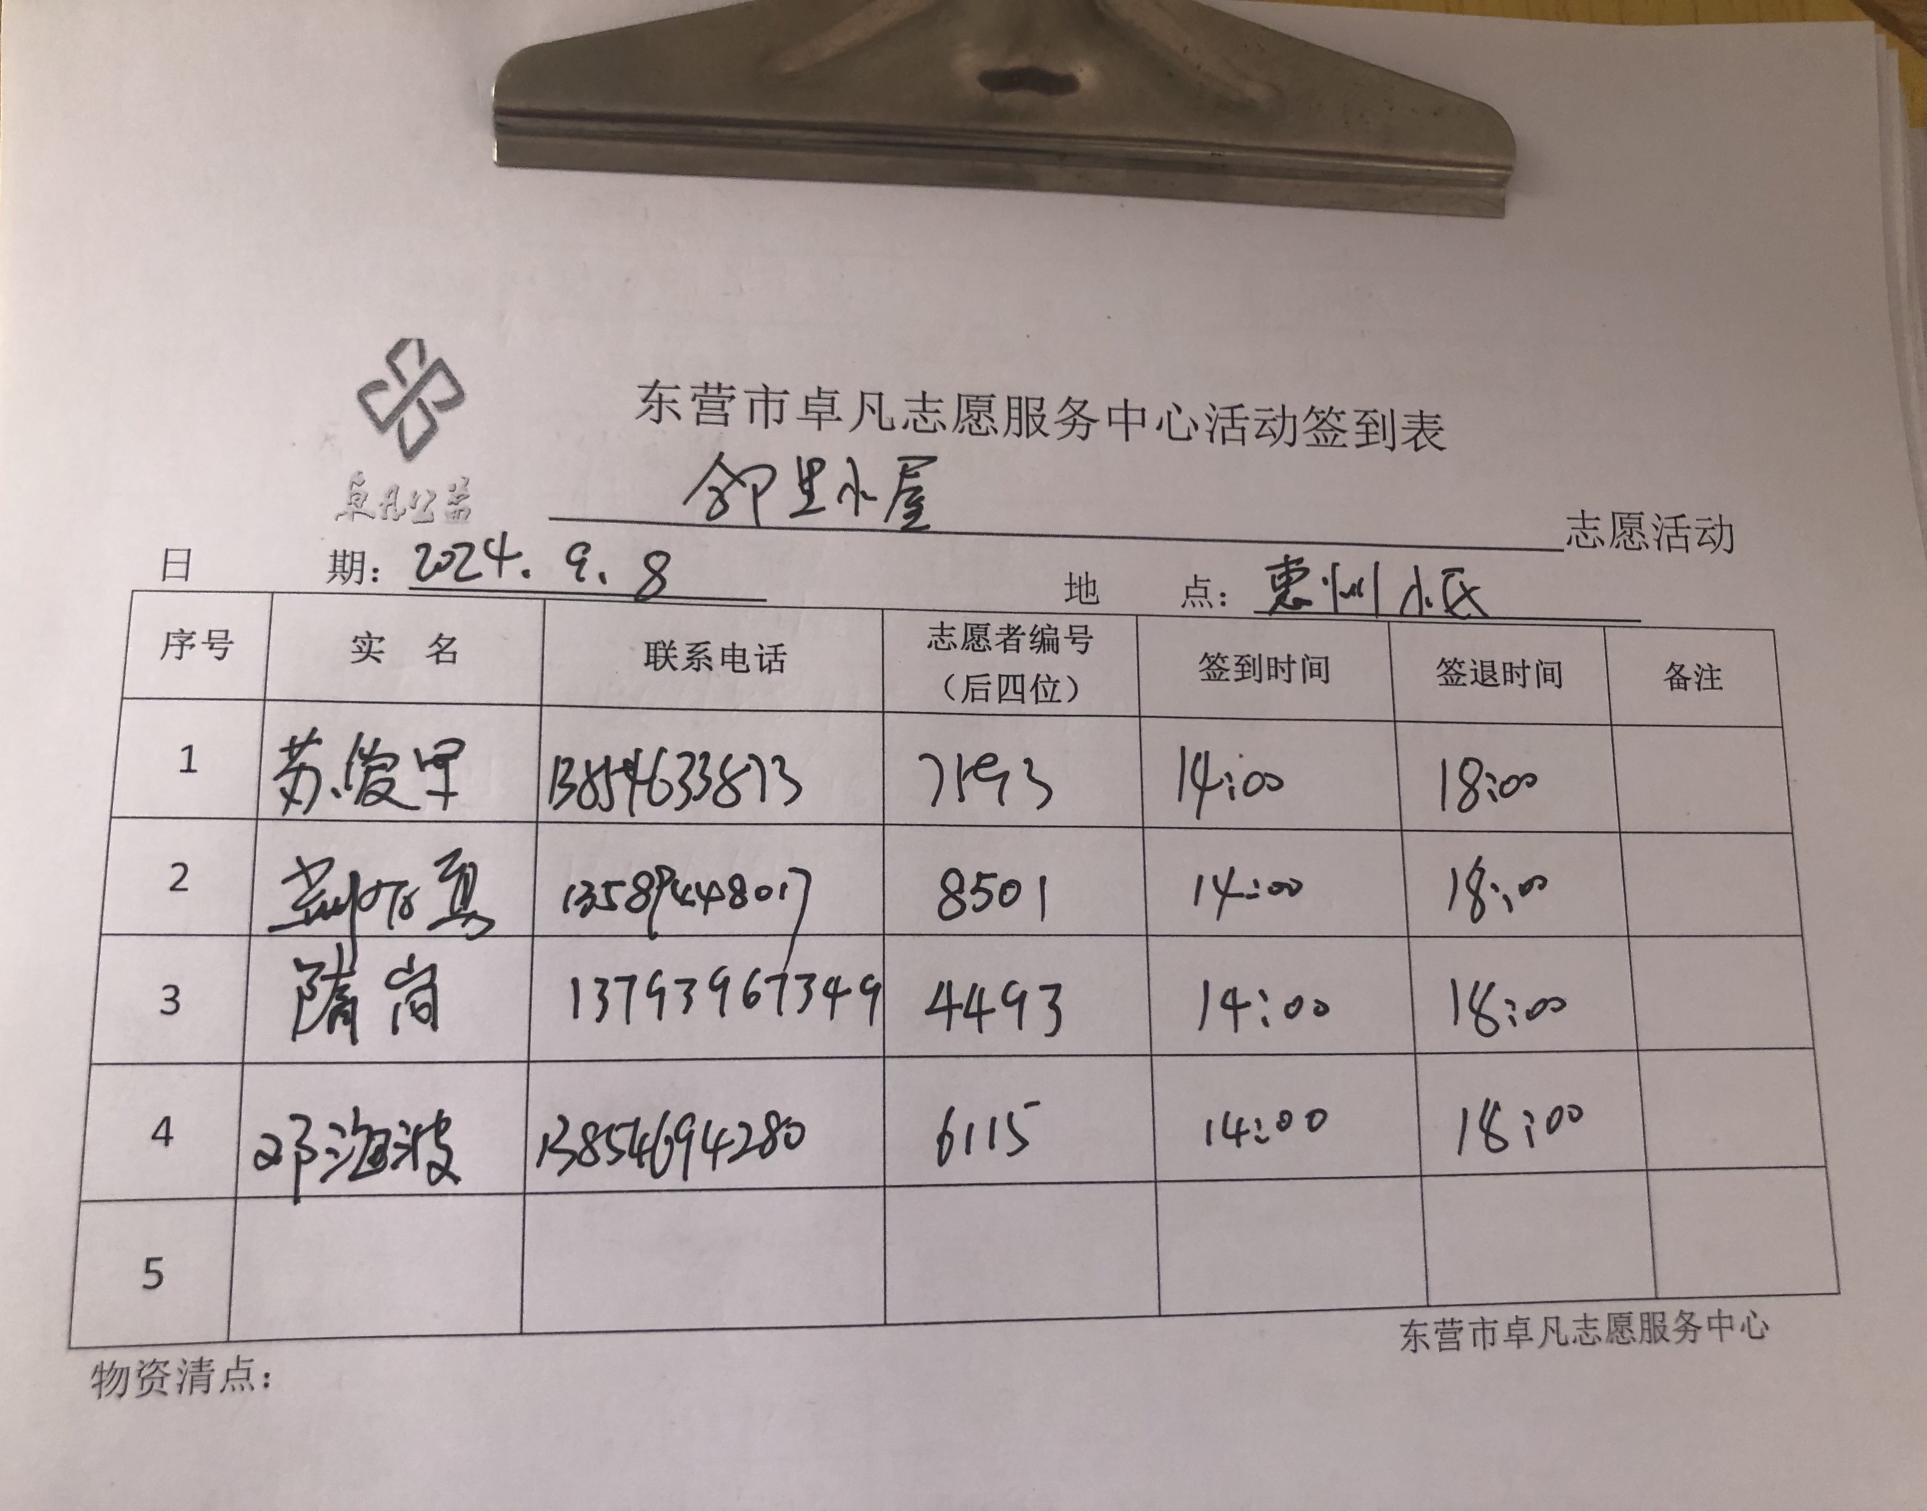 东营市卓凡志愿服务中心活动签到表
卓凡公益
邻里小屋 志愿活动
日 期: 2024.9.8 地 点: 惠州小区
序号 实 名 联系电话 志愿者编号(后四位) 签到时间 签退时间 备注
1 苏俊早 13854633873 7193 14:00 18:00
2 13589448017 8501 14:00 18:00
3 隋岗 13793967349 4493 14:00 18:00
4 邓海波 13854694280 6115 14:00 18:00
5
东营市卓凡志愿服务中心
物资清点: